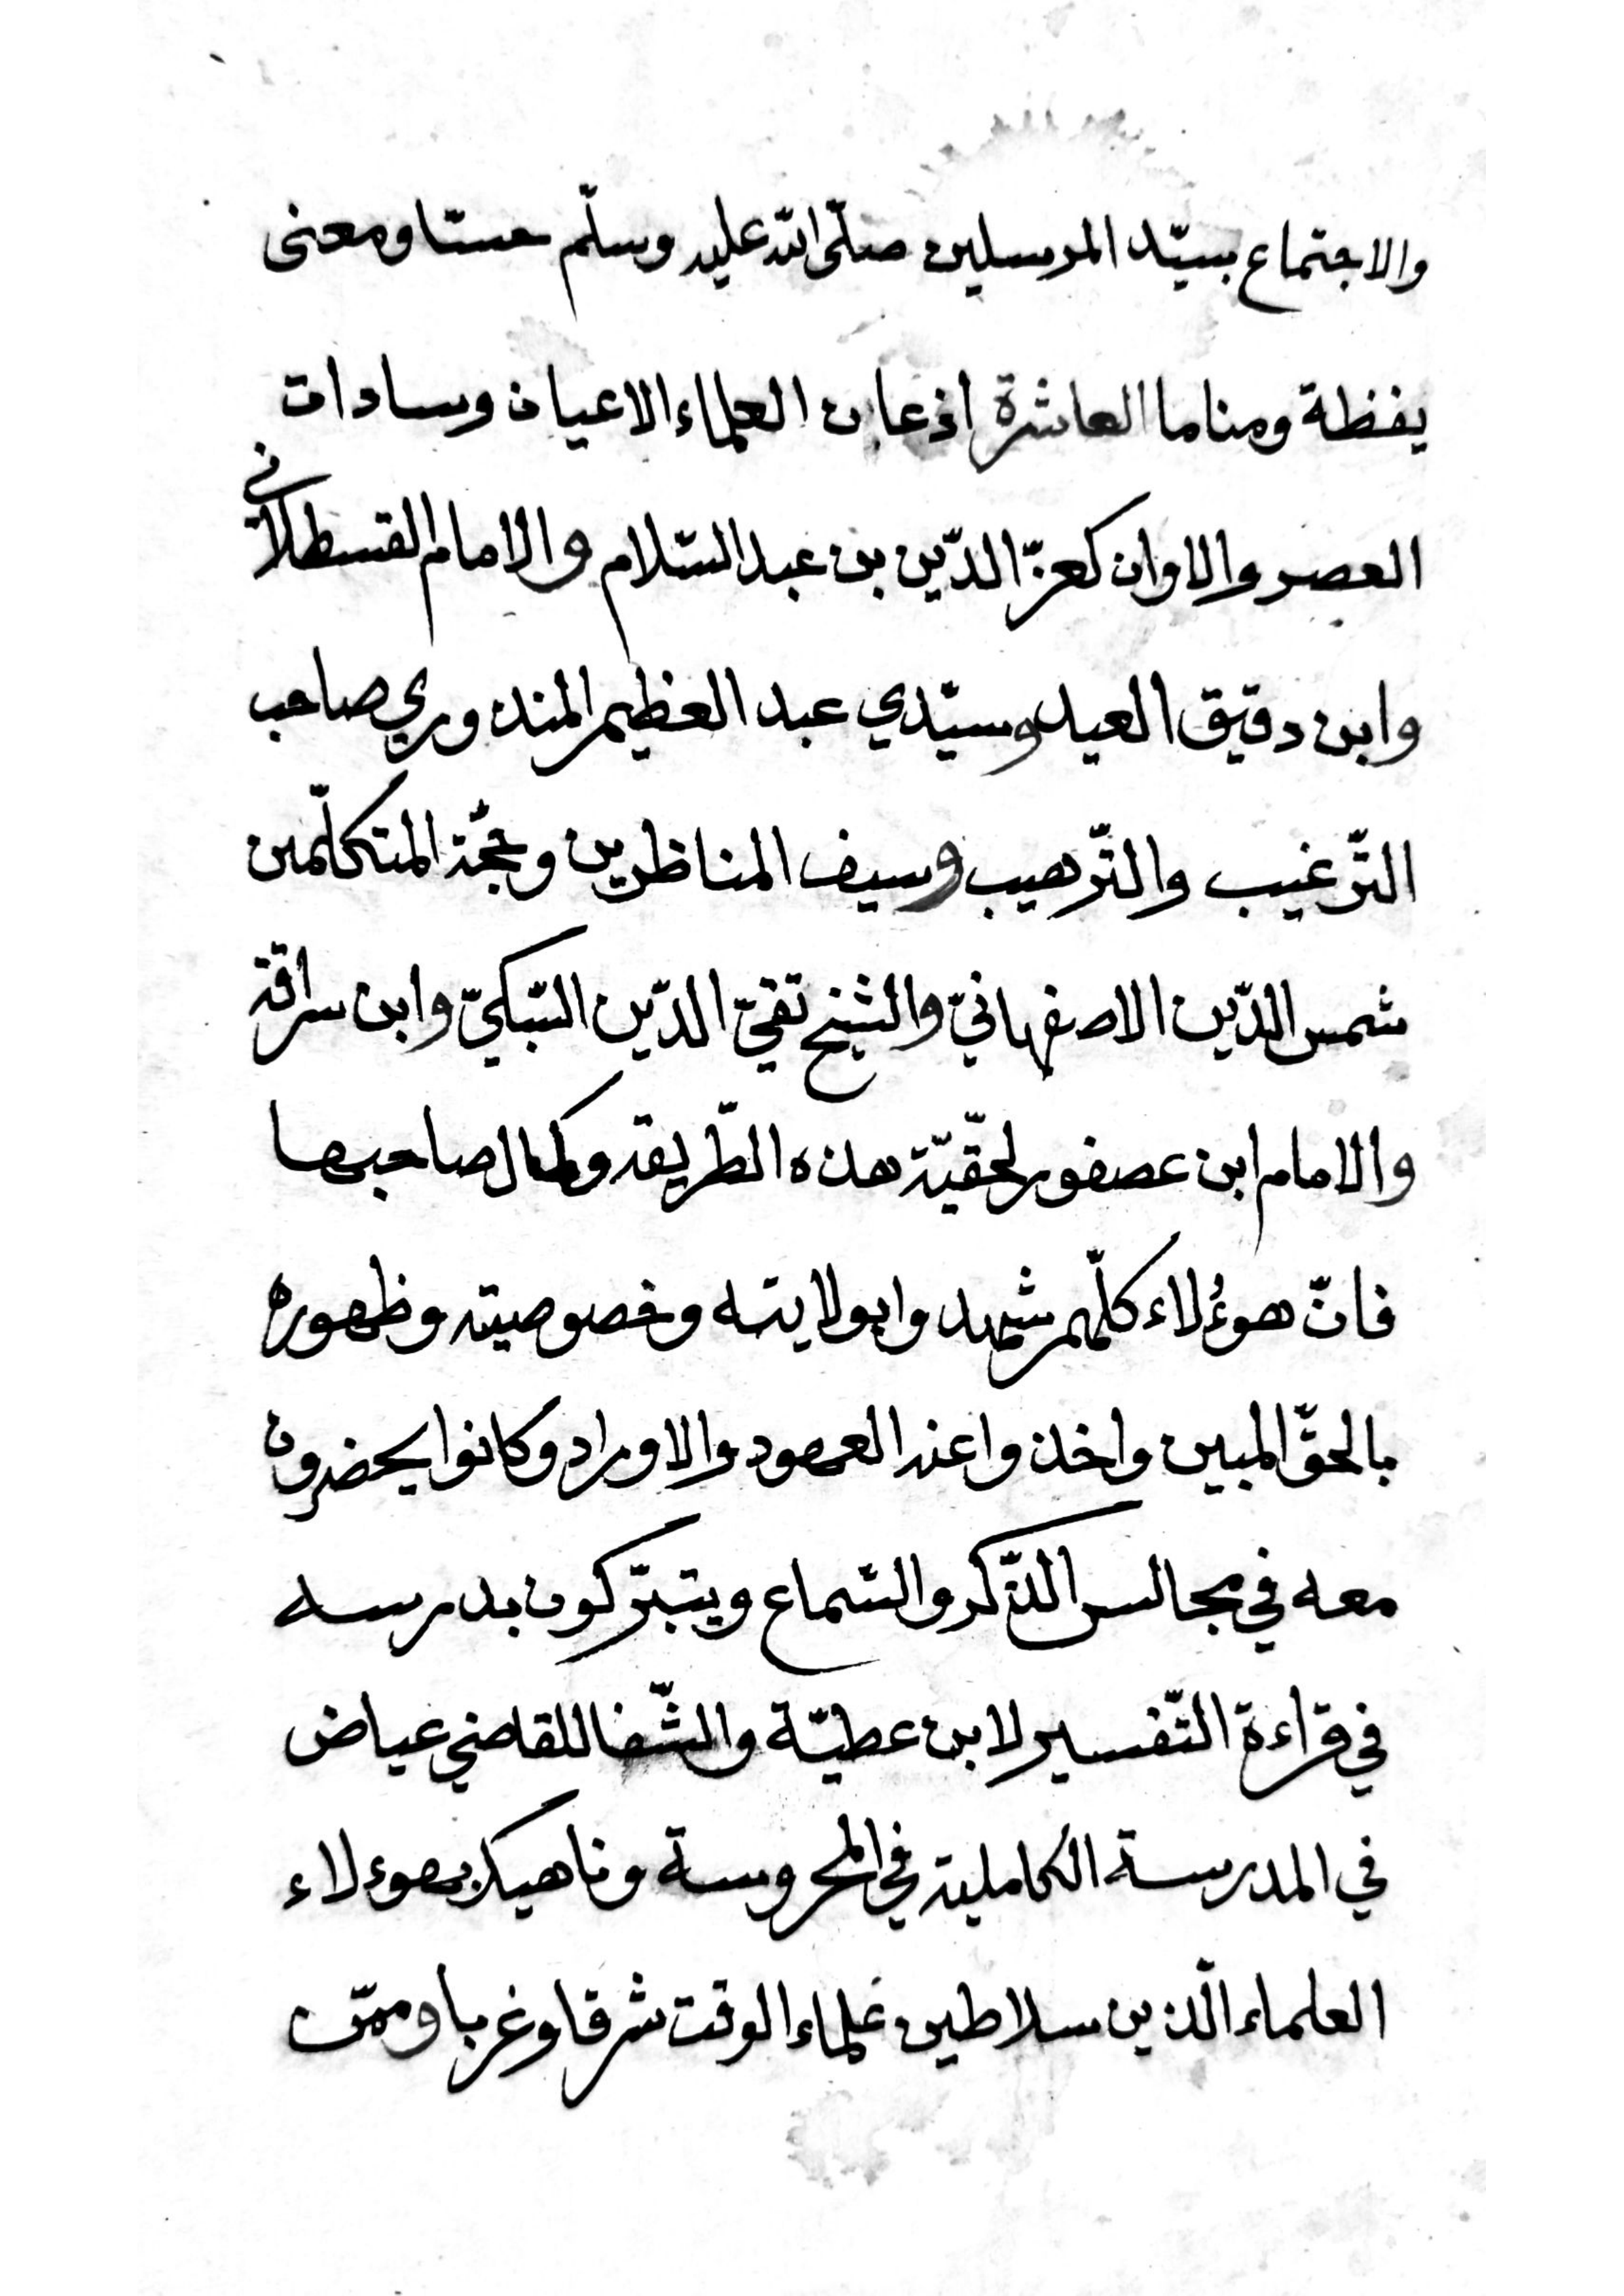 والاجتماع بسيّد المرسلين صلّى الله عليه وسلّم حسّا ومعنى
يفظة ومناما العاشرة اذعان العلماء الاعيان وسادات
العصر والاوان كعزّ الدّين بن عبد السّلام والامام القسطلاني
وابن دقيق العيد وسيّدي عبد العظيم المنذوري صاحب
التّرغيب والتّرهيب وسيف المناظرين وحجّة المتكلّمين
شمس الدّين الاصفهانيّ والشيخ تقيّ الدّين السّبكيّ وابن سراقة
والامام ابن عصفور لحقّيّة هذه الطّريقه وكمال صاحبها
فانّ هوءُلاء كلّهم شهدوا بولايته وخصوصيته وظهوره
بالحقّ المبين واخذوا عنه العهود والاوراد وكانوا يحضرون
معه في مجالس الذّكر والسّماع ويتبرّكون بدرسه
في قراءة التّفسير لابن عطيّة والشّفا للقاضي عياض
في المدرسة الكاملية في المحروسة وناهيك بهوءلاء
العلماء الّذين سلاطين علماء الوقت شرقا وغربا وممّن